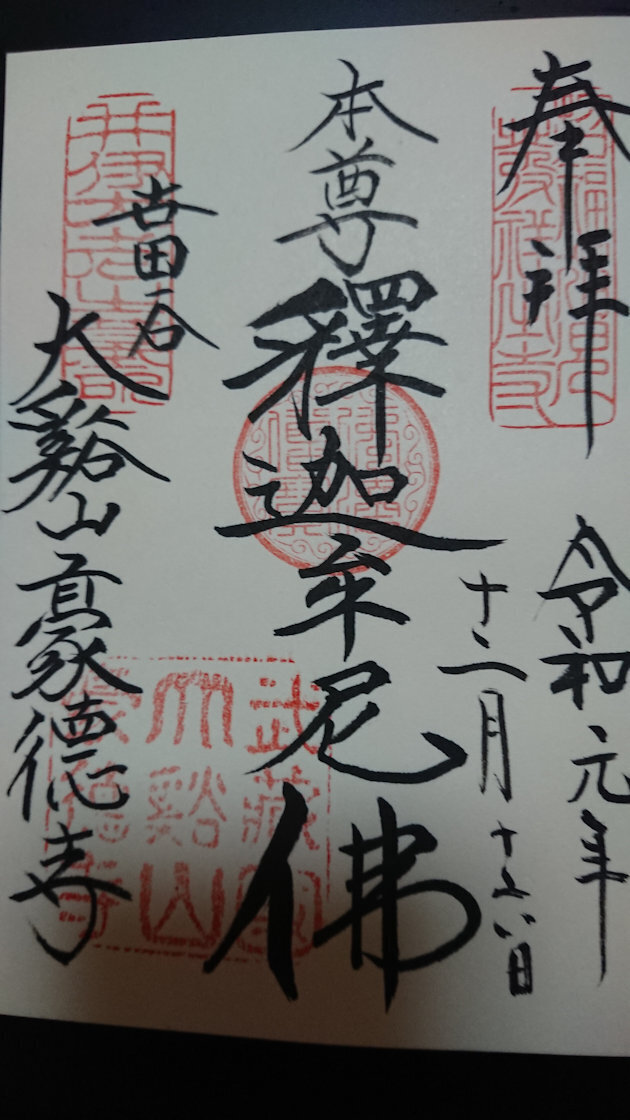 奉拝
令和元年
十二月
本尊
釋迦牟尼佛
世田谷
大谿山豪徳寺
武藏國
大谿山
豪德寺